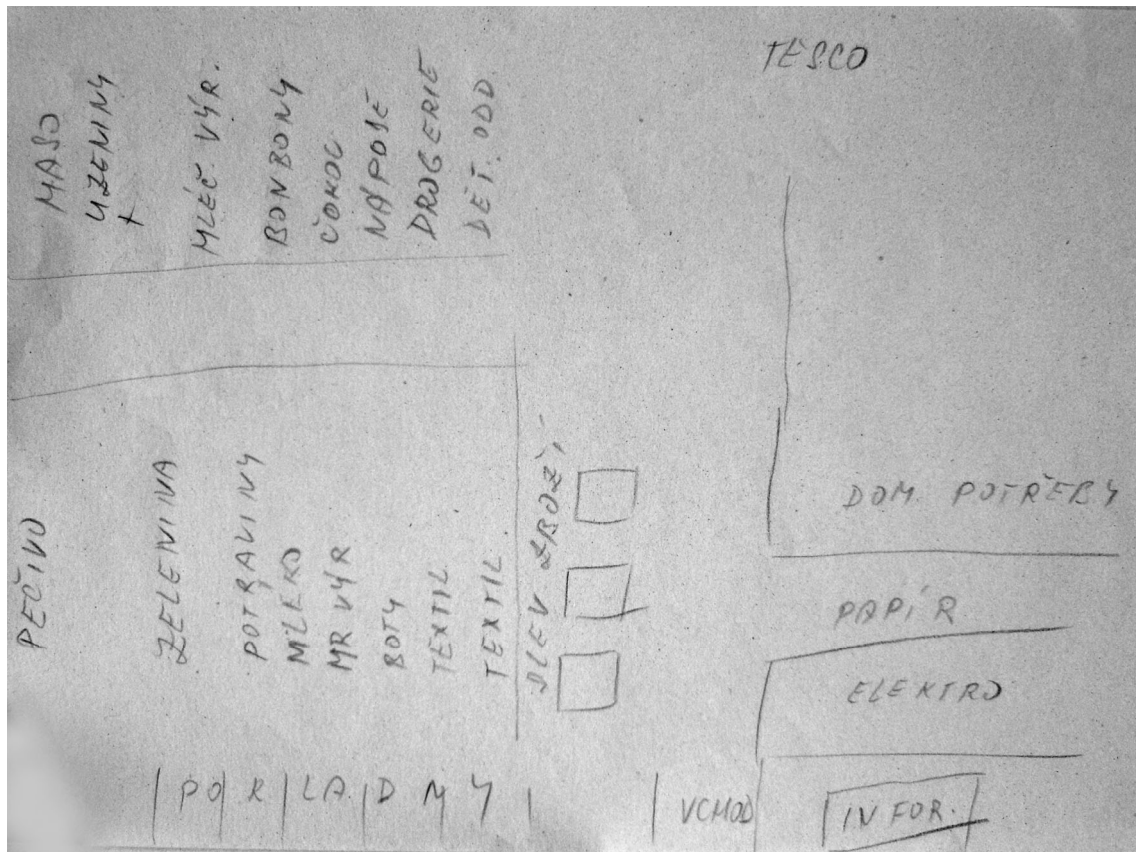 TESCO
MASO
UZENINY
+
MLÉČ VÝR.
BONBONY
ČOKOL
NÁPOJE
DROGERIE
DĚT. ODD.
PEČIVO
ZELENINA
POTRAVINY
MLÉKO
MR VÝR
BOTY
TEXTIL
TEXTIL
SLEV ZBOŽÍ
DOM. POTŘEBY
PAPÍR
ELEKTRO
POKLADNY
VCHOD
INFOR.